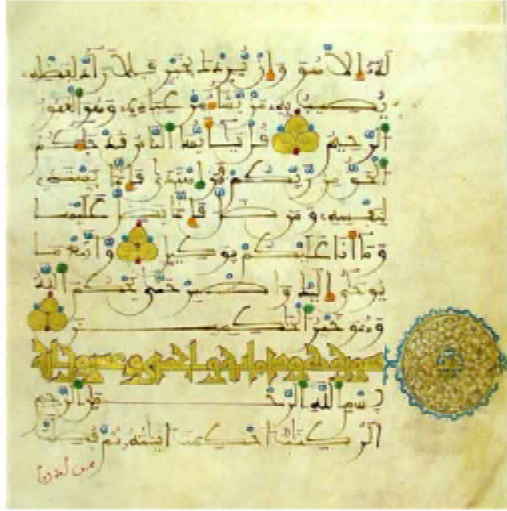 له إلا هو وإن يردك بخير فلا راد لفضله
يصيب به من يشاء من عباده وهو الغفور
الرحيم قل يأيها الناس قد جاءكم
الحق من ربكم فمن اهتدى فإنما يهتدي
لنفسه ومن ضل فإنما يضل عليها
وما أنا عليكم بوكيل واتبع ما
يوحى إليك واصبر حتى يحكم الله
وهو خير الحكمين
سورة هود مائة وإحدى وعشرون آية
بسم الله الرحمن الرحيم
الر كتب أحكمت ايته ثم فصلت
من لدن